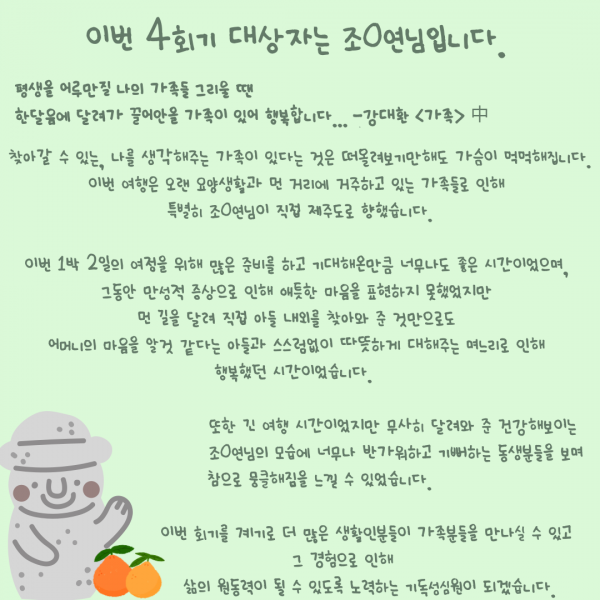 이번 4회기 대상자는 조O연님입니다.
평생을 어루만질 나의 가족들 그리울 땐
한달음에 달려가 끌어안을 가족이 있어 행복합니다... -강대환 <가족> 中
찾아갈 수 있는, 나를 생각해주는 가족이 있다는 것은 떠올려보기만해도 가슴이 먹먹해집니다.
이번 여행은 오랜 요양생활과 먼 거리에 거주하고 있는 가족들로 인해
특별히 조O연님이 직접 제주도로 향했습니다.
이번 1박 2일의 여정을 위해 많은 준비를 하고 기대해온만큼 너무나도 좋은 시간이었으며,
그동안 만성적 증상으로 인해 애틋한 마음을 표현하지 못했었지만
먼 길을 달려 직접 아들 내외를 찾아와 준 것만으로도
어머니의 마음을 알것 같다는 아들과 스스럼없이 따뜻하게 대해주는 며느리로 인해
행복했던 시간이었습니다.
또한 긴 여행 시간이었지만 무사히 달려와 준 건강해보이는
조O연님의 모습에 너무나 반가워하고 기뻐하는 동생분들을 보며
참으로 뭉클해짐을 느낄 수 있었습니다.
이번 회기를 계기로 더 많은 생활인분들이 가족분들을 만나실 수 있고
그 경험으로 인해
삶의 원동력이 될 수 있도록 노력하는 기독성심원이 되겠습니다.